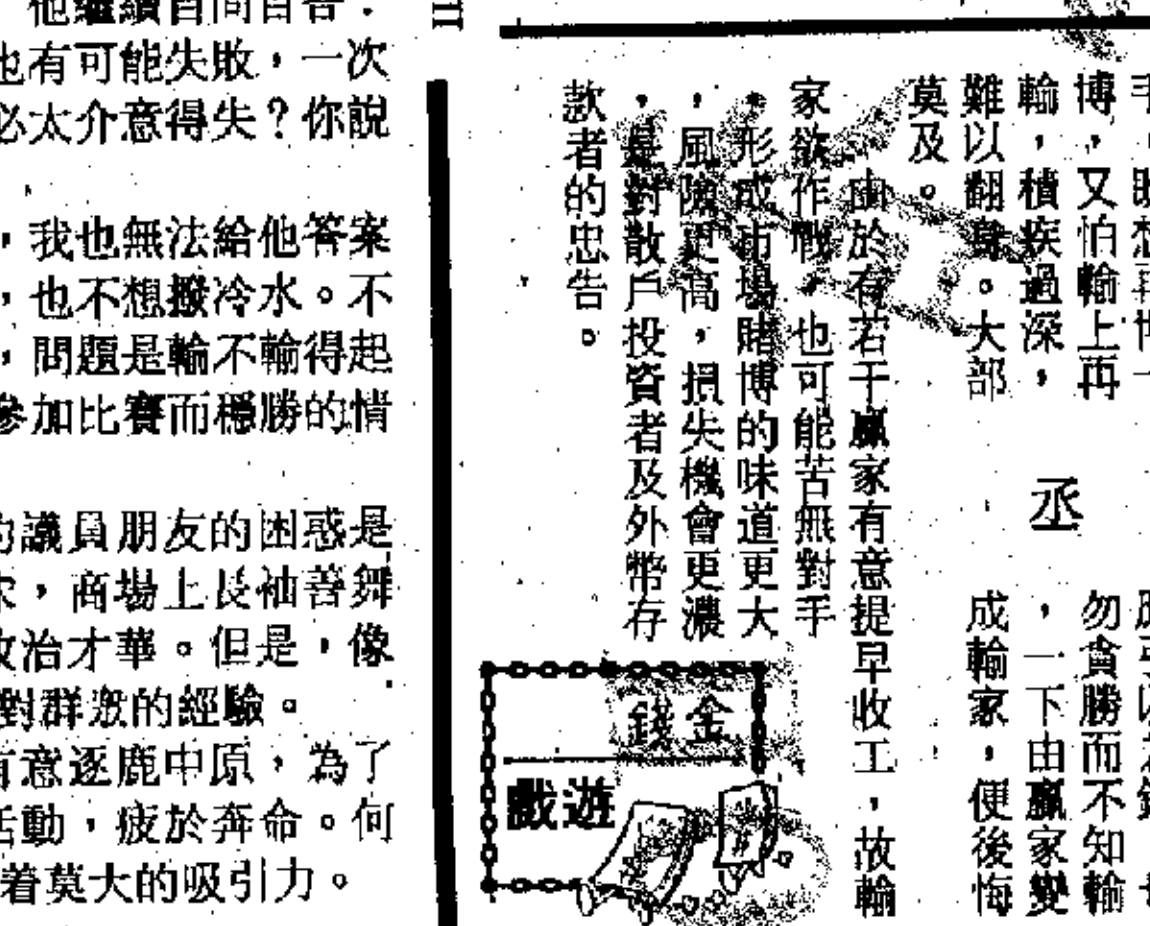 他繼續自問自答：
也有可能失敗，一次
必太介意得失？你說
，我也無法給他答案
，也不想撥冷水。不
，問題是輸不輸得起
參加比賽而穩勝的情
的議員朋友的困惑是
，商場上長袖善舞
政治才華。但是，像
對群眾的經驗。
有意逐鹿中原，為了
活動，疲於奔命。何
着莫大的吸引力。
博，又怕輸上再
輸，積疾過深，
難以翻身。大部
莫及。
丞
勿貪勝而不知輸
，一下由贏家變
成輸家，便後悔
由於有若干贏家有意提早收工，故輸
家欲作戰，也可能苦無對手
，形成市場賭博的味道更大
，風險更高，損失機會更濃
，是對散戶投資者及外幣存
款者的忠告。
金錢
遊戲